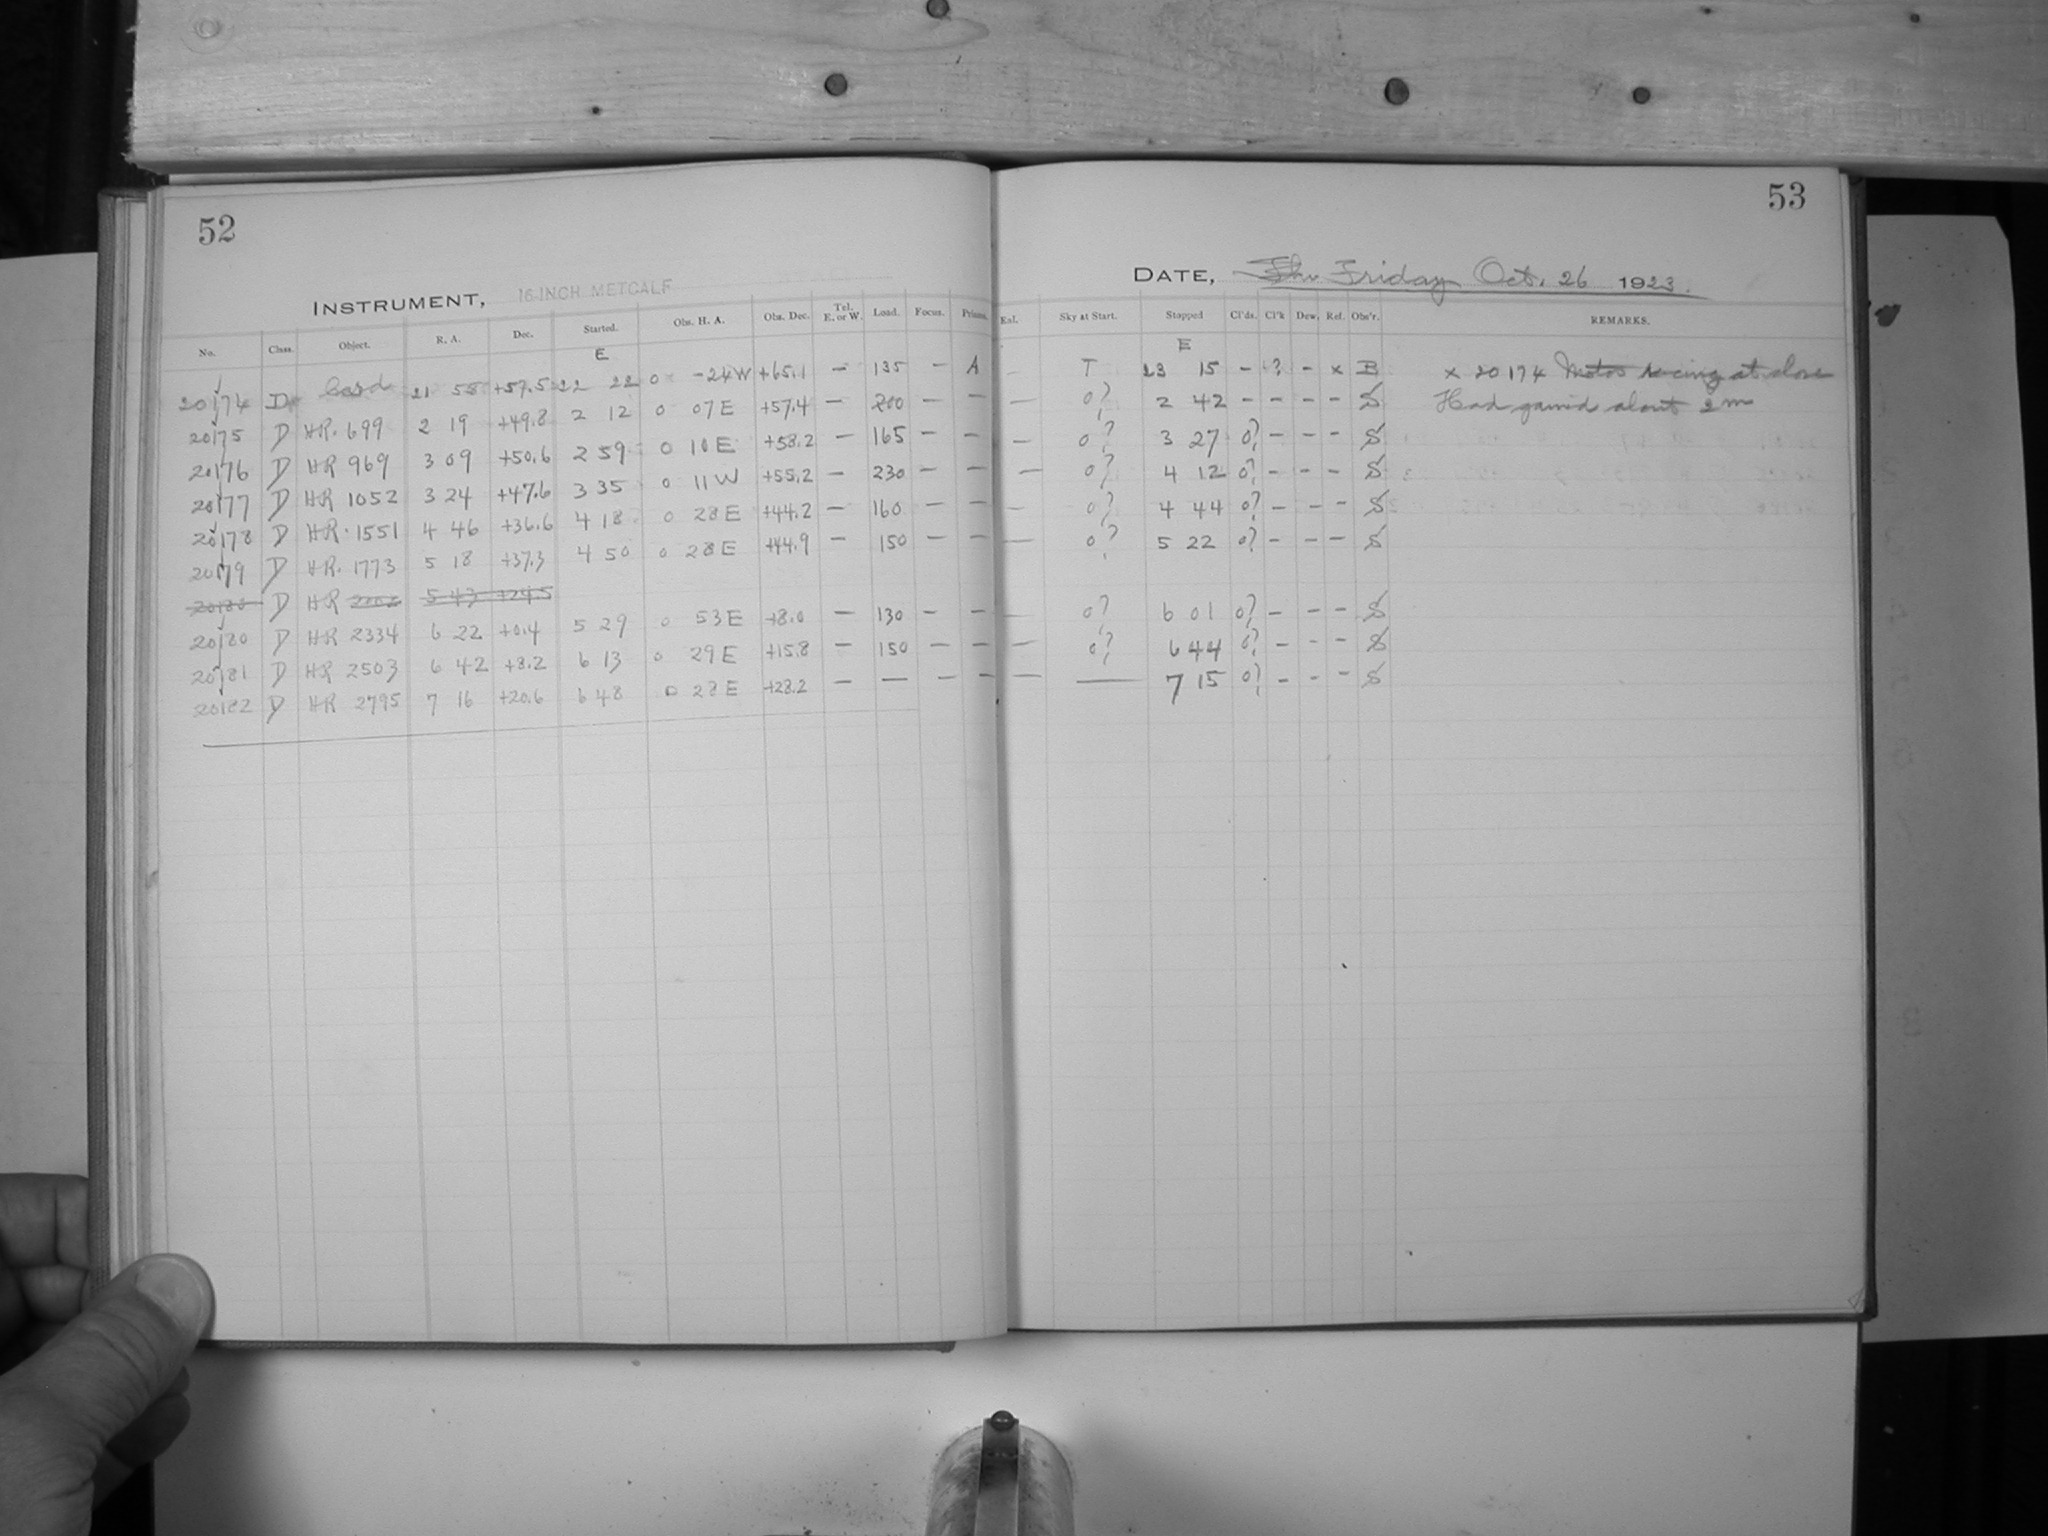 52
53
INSTRUMENT, 16-INCH METCALF
DATE, Friday Oct. 26 1923.
No. Class. Object. R. A. Dec. Started. Obs. H. A. Obs. Dec. Tel. E. or W. Load. Focus. Prisms. Enl. Sky at Start. Stopped Cl'ds. Cl'k Dew. Ref. Obs'r. REMARKS.
E E
20174 D Card 21 55 +57.5 22 22 0 -24W +65.1 — 135 — A — T 23 15 - ? - x B x 20174 Motor racing at close
20175 D HR. 699 2 19 +49.8 2 12 0 07E +57.4 — 200 — — — 0? 2 42 - - - - S Had gained about 2m
20176 D HR 969 3 09 +50.6 2 59 0 10E +58.2 — 165 — — — 0? 3 27 0? - - - S
20177 D HR 1052 3 24 +47.6 3 35 0 11W +55.2 — 230 — — — 0? 4 12 0? - - - S
20178 D HR. 1551 4 46 +36.6 4 18 0 28E +44.2 — 160 — — — 0? 4 44 0? - - - S
20179 D HR. 1773 5 18 +37.3 4 50 0 28E +44.9 — 150 — — — 0? 5 22 0? - - - S
20180 D HR 5 43 +24.5
20180 D HR 2334 6 22 +0.4 5 29 0 53E +8.0 — 130 — — — 0? 6 01 0? - - - S
20181 D HR 2503 6 42 +8.2 6 13 0 29E +15.8 — 150 — — — 0? 6 44 0? - - - S
20182 D HR 2795 7 16 +20.6 6 48 0 28E +28.2 — — — — — — 7 15 0? - - - S